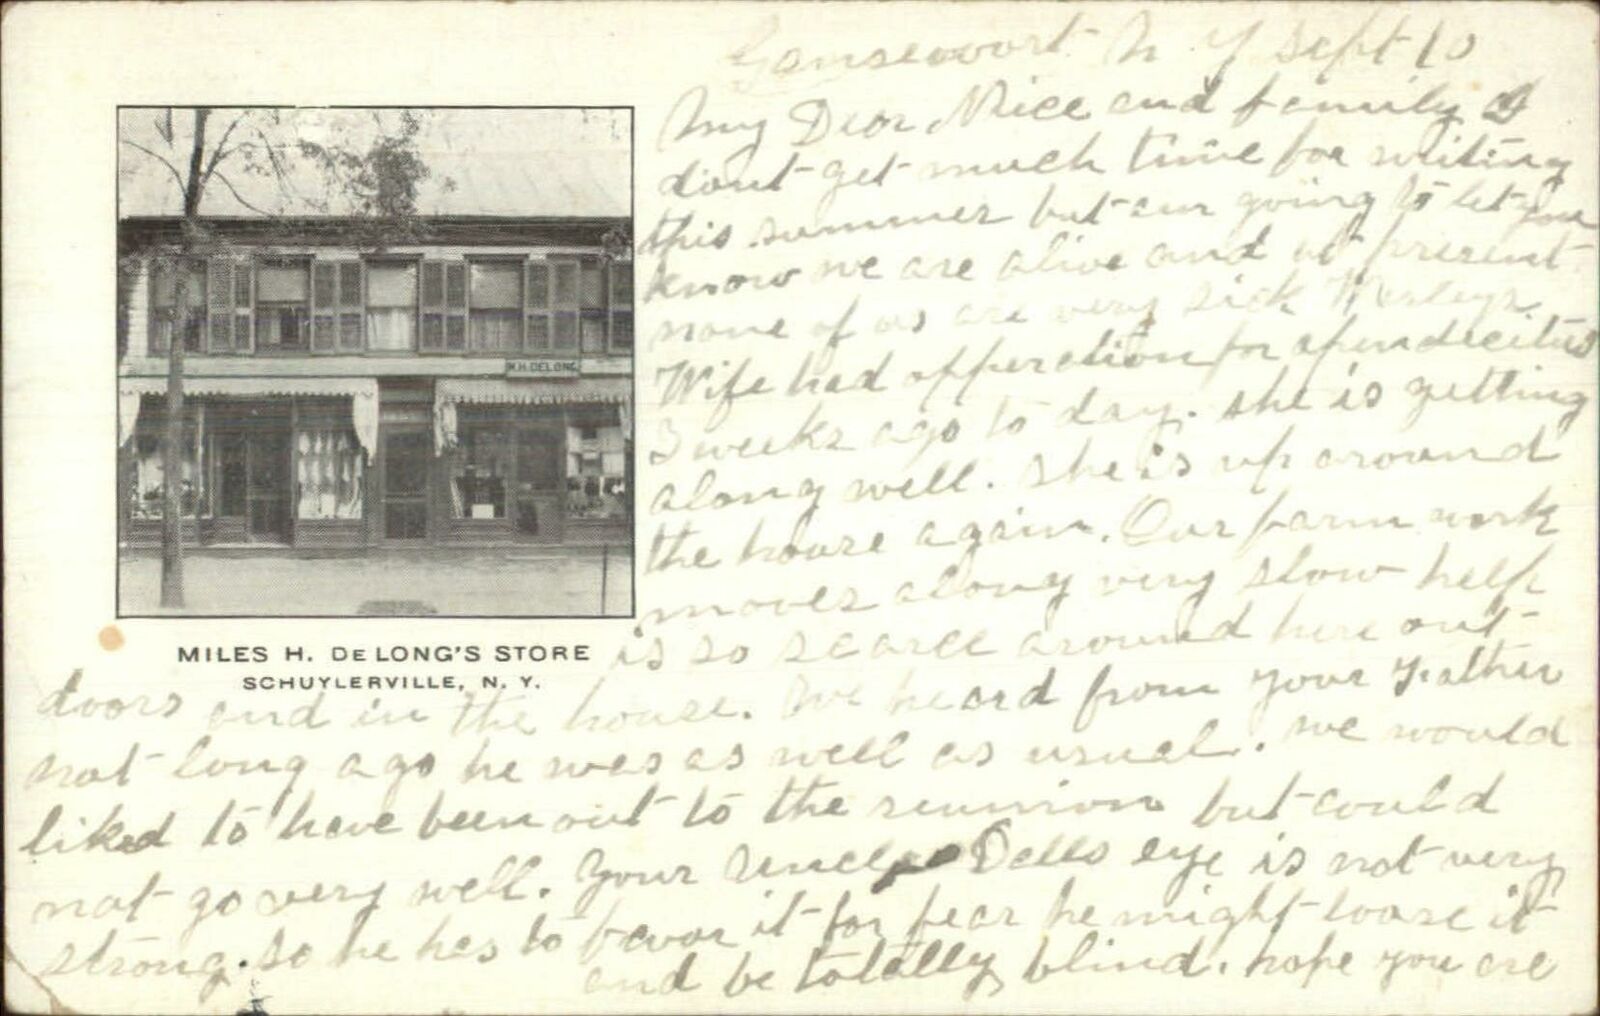 Gansevoort N Y Sept 10
My Dear Niece and family I
dont get much time for writing
this summer but am going to let you
know we are alive and at present
none of us are very sick Wesleys
Wife had opperation for apendecitus
3 weeks ago to day. she is getting
along well. she is up around
the house again. Our farm work
moves along very slow help
is so scarce around here out
doors and in the house. We heard from your Father
not long ago he was as well as usual. we would
liked to have been out to the reunion but could
not go very well. Your Uncle Dells eye is not very
strong. so he has to favor it for fear he might loose it
and be totally blind. hope you are
M.H. DELONG
MILES H. DELONG'S STORE
SCHUYLERVILLE, N. Y.